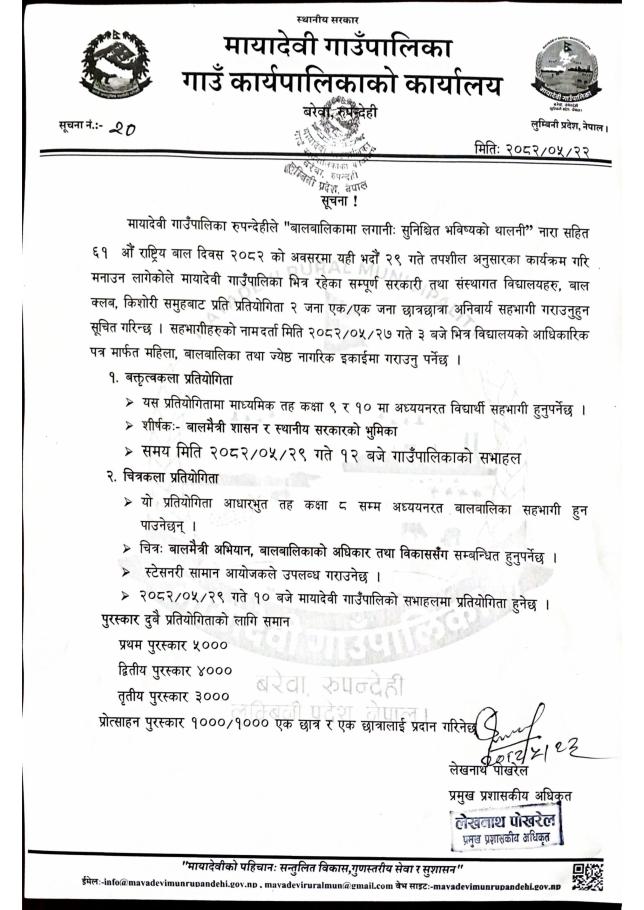 स्थानीय सरकार
मायादेवी गाउँपालिका
गाउँ कार्यपालिकाको कार्यालय
बरेवा, रुपन्देही
सूचना नं.:- २०
लुम्बिनी प्रदेश, नेपाल।
मितिः २०८२/०५/२२
सूचना !
मायादेवी गाउँपालिका रुपन्देहीले "बालबालिकामा लगानीः सुनिश्चित भविष्यको थालनी" नारा सहित
६१ औं राष्ट्रिय बाल दिवस २०८२ को अवसरमा यही भदौं २९ गते तपशील अनुसारका कार्यक्रम गरि
मनाउन लागेकोले मायादेवी गाउँपालिका भित्र रहेका सम्पूर्ण सरकारी तथा संस्थागत विद्यालयहरु, बाल
क्लब, किशोरी समुहबाट प्रति प्रतियोगिता २ जना एक/एक जना छात्रछात्रा अनिवार्य सहभागी गराउनुहुन
सूचित गरिन्छ । सहभागीहरुको नामदर्ता मिति २०८२/०५/२७ गते ३ बजे भित्र विद्यालयको आधिकारिक
पत्र मार्फत महिला, बालबालिका तथा ज्येष्ठ नागरिक इकाईमा गराउनु पर्नेछ ।
१. बक्तृत्वकला प्रतियोगिता
➤ यस प्रतियोगितामा माध्यमिक तह कक्षा ९ र १० मा अध्ययनरत विद्यार्थी सहभागी हुनुपर्नेछ ।
➤ शीर्षकः- बालमैत्री शासन र स्थानीय सरकारको भुमिका
➤ समय मिति २०८२/०५/२९ गते १२ बजे गाउँपालिकाको सभाहल
२. चित्रकला प्रतियोगिता
➤ यो प्रतियोगिता आधारभुत तह कक्षा ८ सम्म अध्ययनरत बालबालिका सहभागी हुन
पाउनेछन् ।
➤ चित्रः बालमैत्री अभियान, बालबालिकाको अधिकार तथा विकाससँग सम्बन्धित हुनुपर्नेछ ।
➤ स्टेसनरी सामान आयोजकले उपलब्ध गराउनेछ ।
➤ २०८२/०५/२९ गते १० बजे मायादेवी गाउँपालिको सभाहलमा प्रतियोगिता हुनेछ ।
पुरस्कार दुबै प्रतियोगिताको लागि समान
प्रथम पुरस्कार ५०००
द्वितीय पुरस्कार ४०००
तृतीय पुरस्कार ३०००
बरेवा, रुपन्देही
लुम्बिनी प्रदेश, नेपाल।
प्रोत्साहन पुरस्कार १०००/१००० एक छात्र र एक छात्रालाई प्रदान गरिनेछ
लेखनाथ पोखरेल
प्रमुख प्रशासकीय अधिकृत
लेखनाथ पोखरेल
प्रमुख प्रशासकीय अधिकृत
"मायादेवीको पहिचानः सन्तुलित विकास,गुणस्तरीय सेवा र सुशासन"
ईमेलः-info@mayadevimunrupandehi.gov.np , mayadeviruralmun@gmail.com वेभ साइटः-mayadevimunrupandehi.gov.np